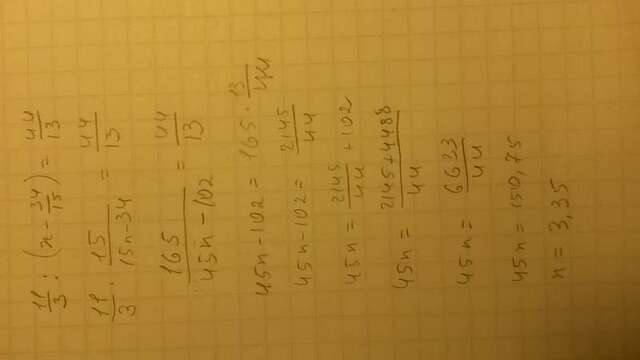 11/3 : (x - 34/15) = 44/13
11/3 · 15/(15x-34) = 44/13
165/(45x-102) = 44/13
45x-102 = 165 · 13/44
45x-102 = 2145/44
45x = 2145/44 + 102
45x = (2145+4488)/44
45x = 6633/44
45x = 150,75
x = 3,35